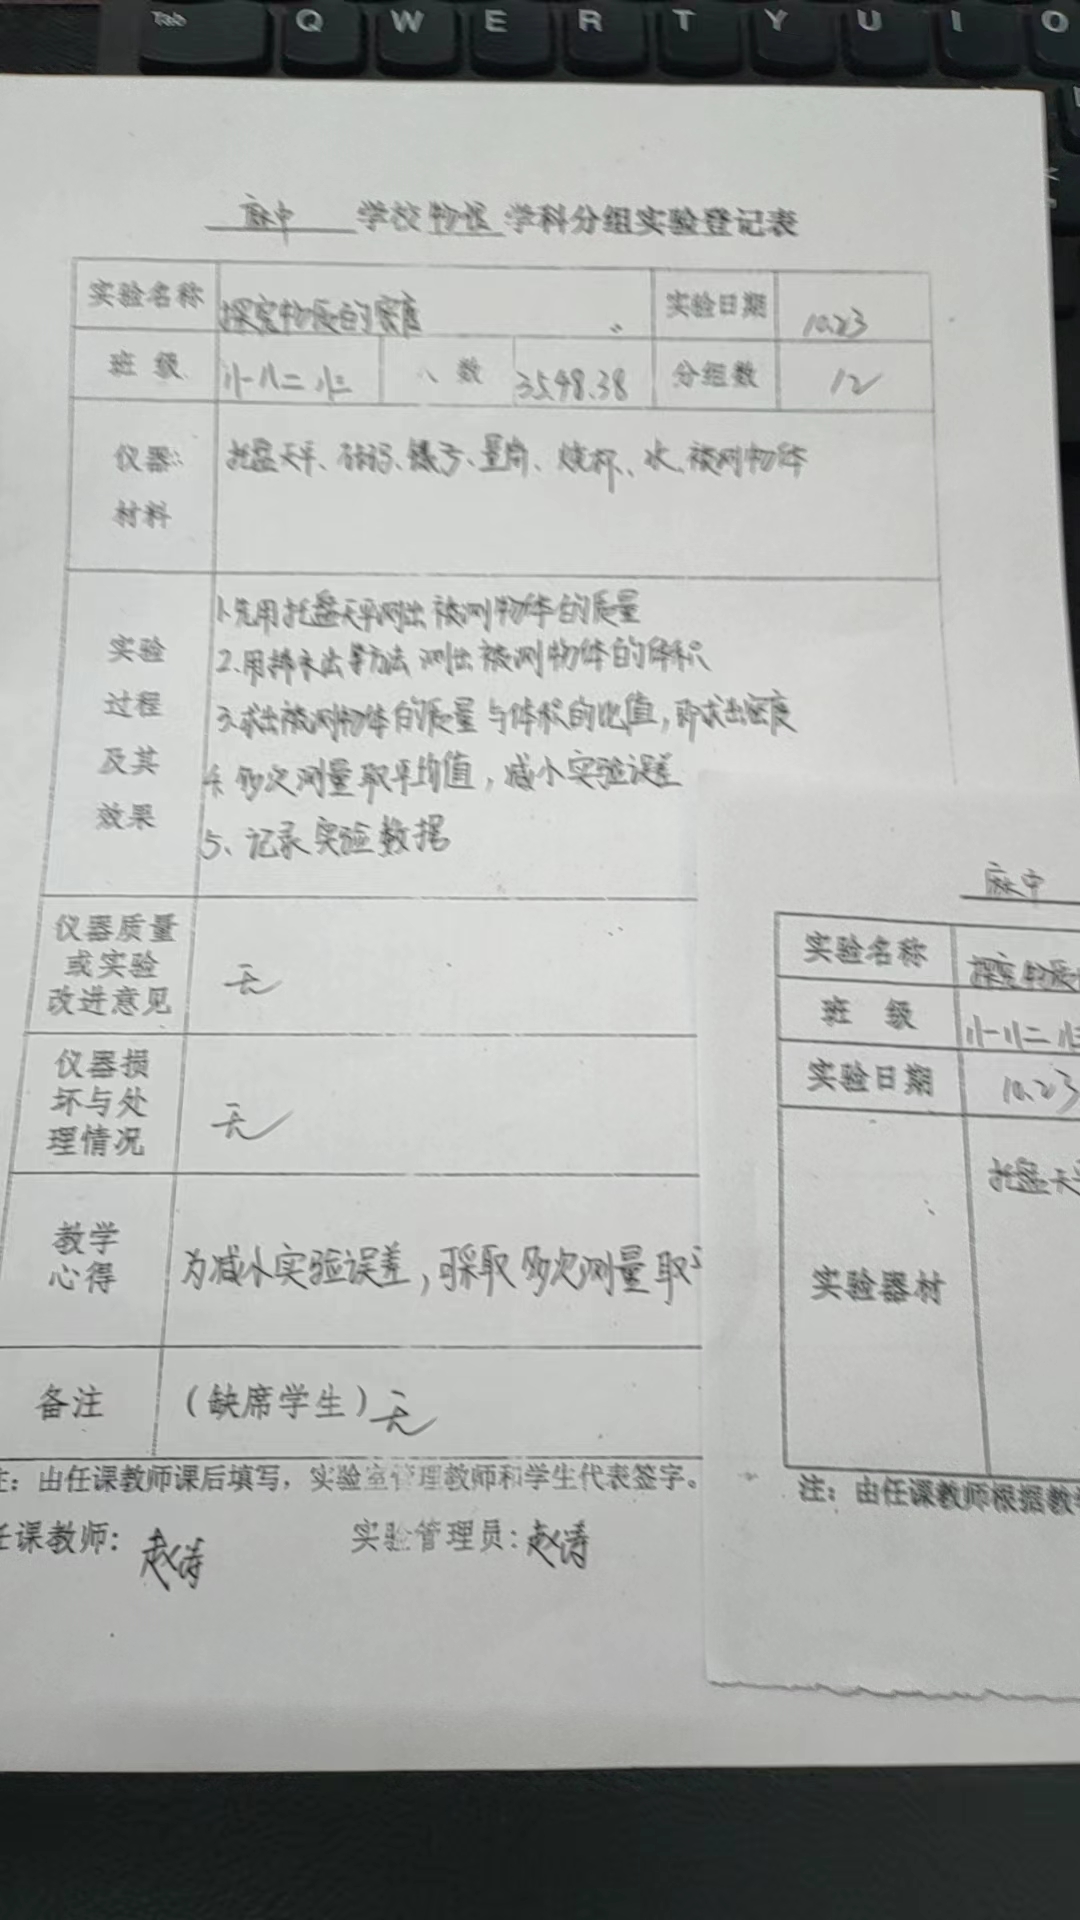 Tab Q W E R T Y U I O
麻中 学校 物理 学科分组实验登记表
实验名称 探究物质的密度 实验日期 10.23
班 级 八一八二 八三 人 数 35.48.38 分组数 12
仪器 托盘天平、砝码、镊子、量筒、烧杯、水、被测物体
材料
1.先用托盘天平测出被测物体的质量
实验 2.用排水法 测出被测物体的体积
过程 3.求出被测物体的质量与体积的比值,即求出密度
及其 4.多次测量取平均值,减小实验误差
效果 5、记录实验数据
仪器质量
或实验 无
改进意见
仪器损
坏与处 无
理情况
教学 为减小实验误差,可采取多次测量取
心得
备注 (缺席学生)无
注:由任课教师课后填写,实验室管理教师和学生代表签字。
任课教师:赵涛 实验管理员:赵涛
麻中
实验名称 探究物质
班 级 八一八二 八三
实验日期 10.23
托盘天平
实验器材
注:由任课教师根据教学